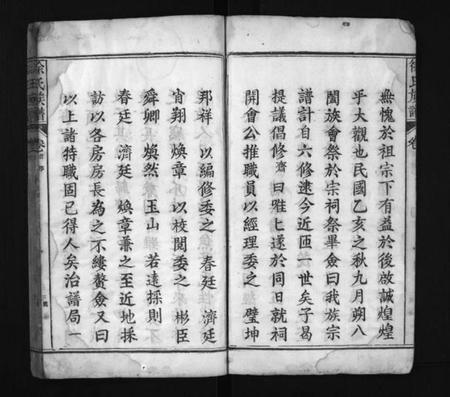 無愧於祖宗下有益於後啟誠煌煌
乎大觀也民國乙亥之秋九月朔八
闔族會祭於宗祠祭畢僉曰我族宗
譜計自六修逮今近匝一世矣子曷
提議倡修齊曰唯乜遂於同日就祠
開會公推職員以經理委之 璧坤
邦祥 以編修委之 春廷 濟廷
宵翔 煥章 以校閱委之 彬臣
舜卿 煥然 玉山 若遠採則
春廷 濟廷 煥章兼之至近地採
訪以各房房長為之不縷贅僉又曰
以上諸特職固已得人矣治譜局一
徐氏族譜 卷
徐氏族譜 卷